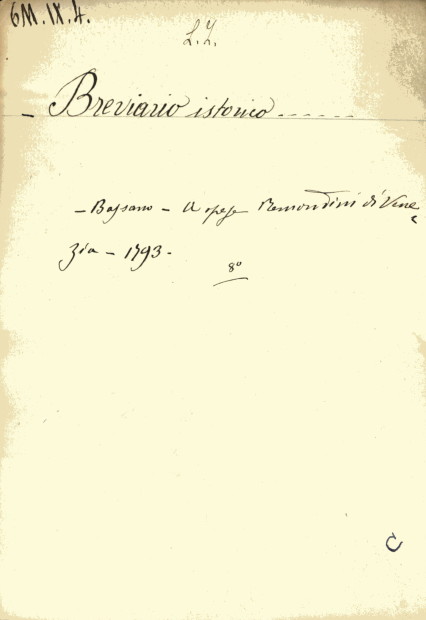 6M.IX.4.
L.Z.
- Breviario istorico ------
- Bassano - A spese Remondini di Vene
zia - 1793.
8º
C